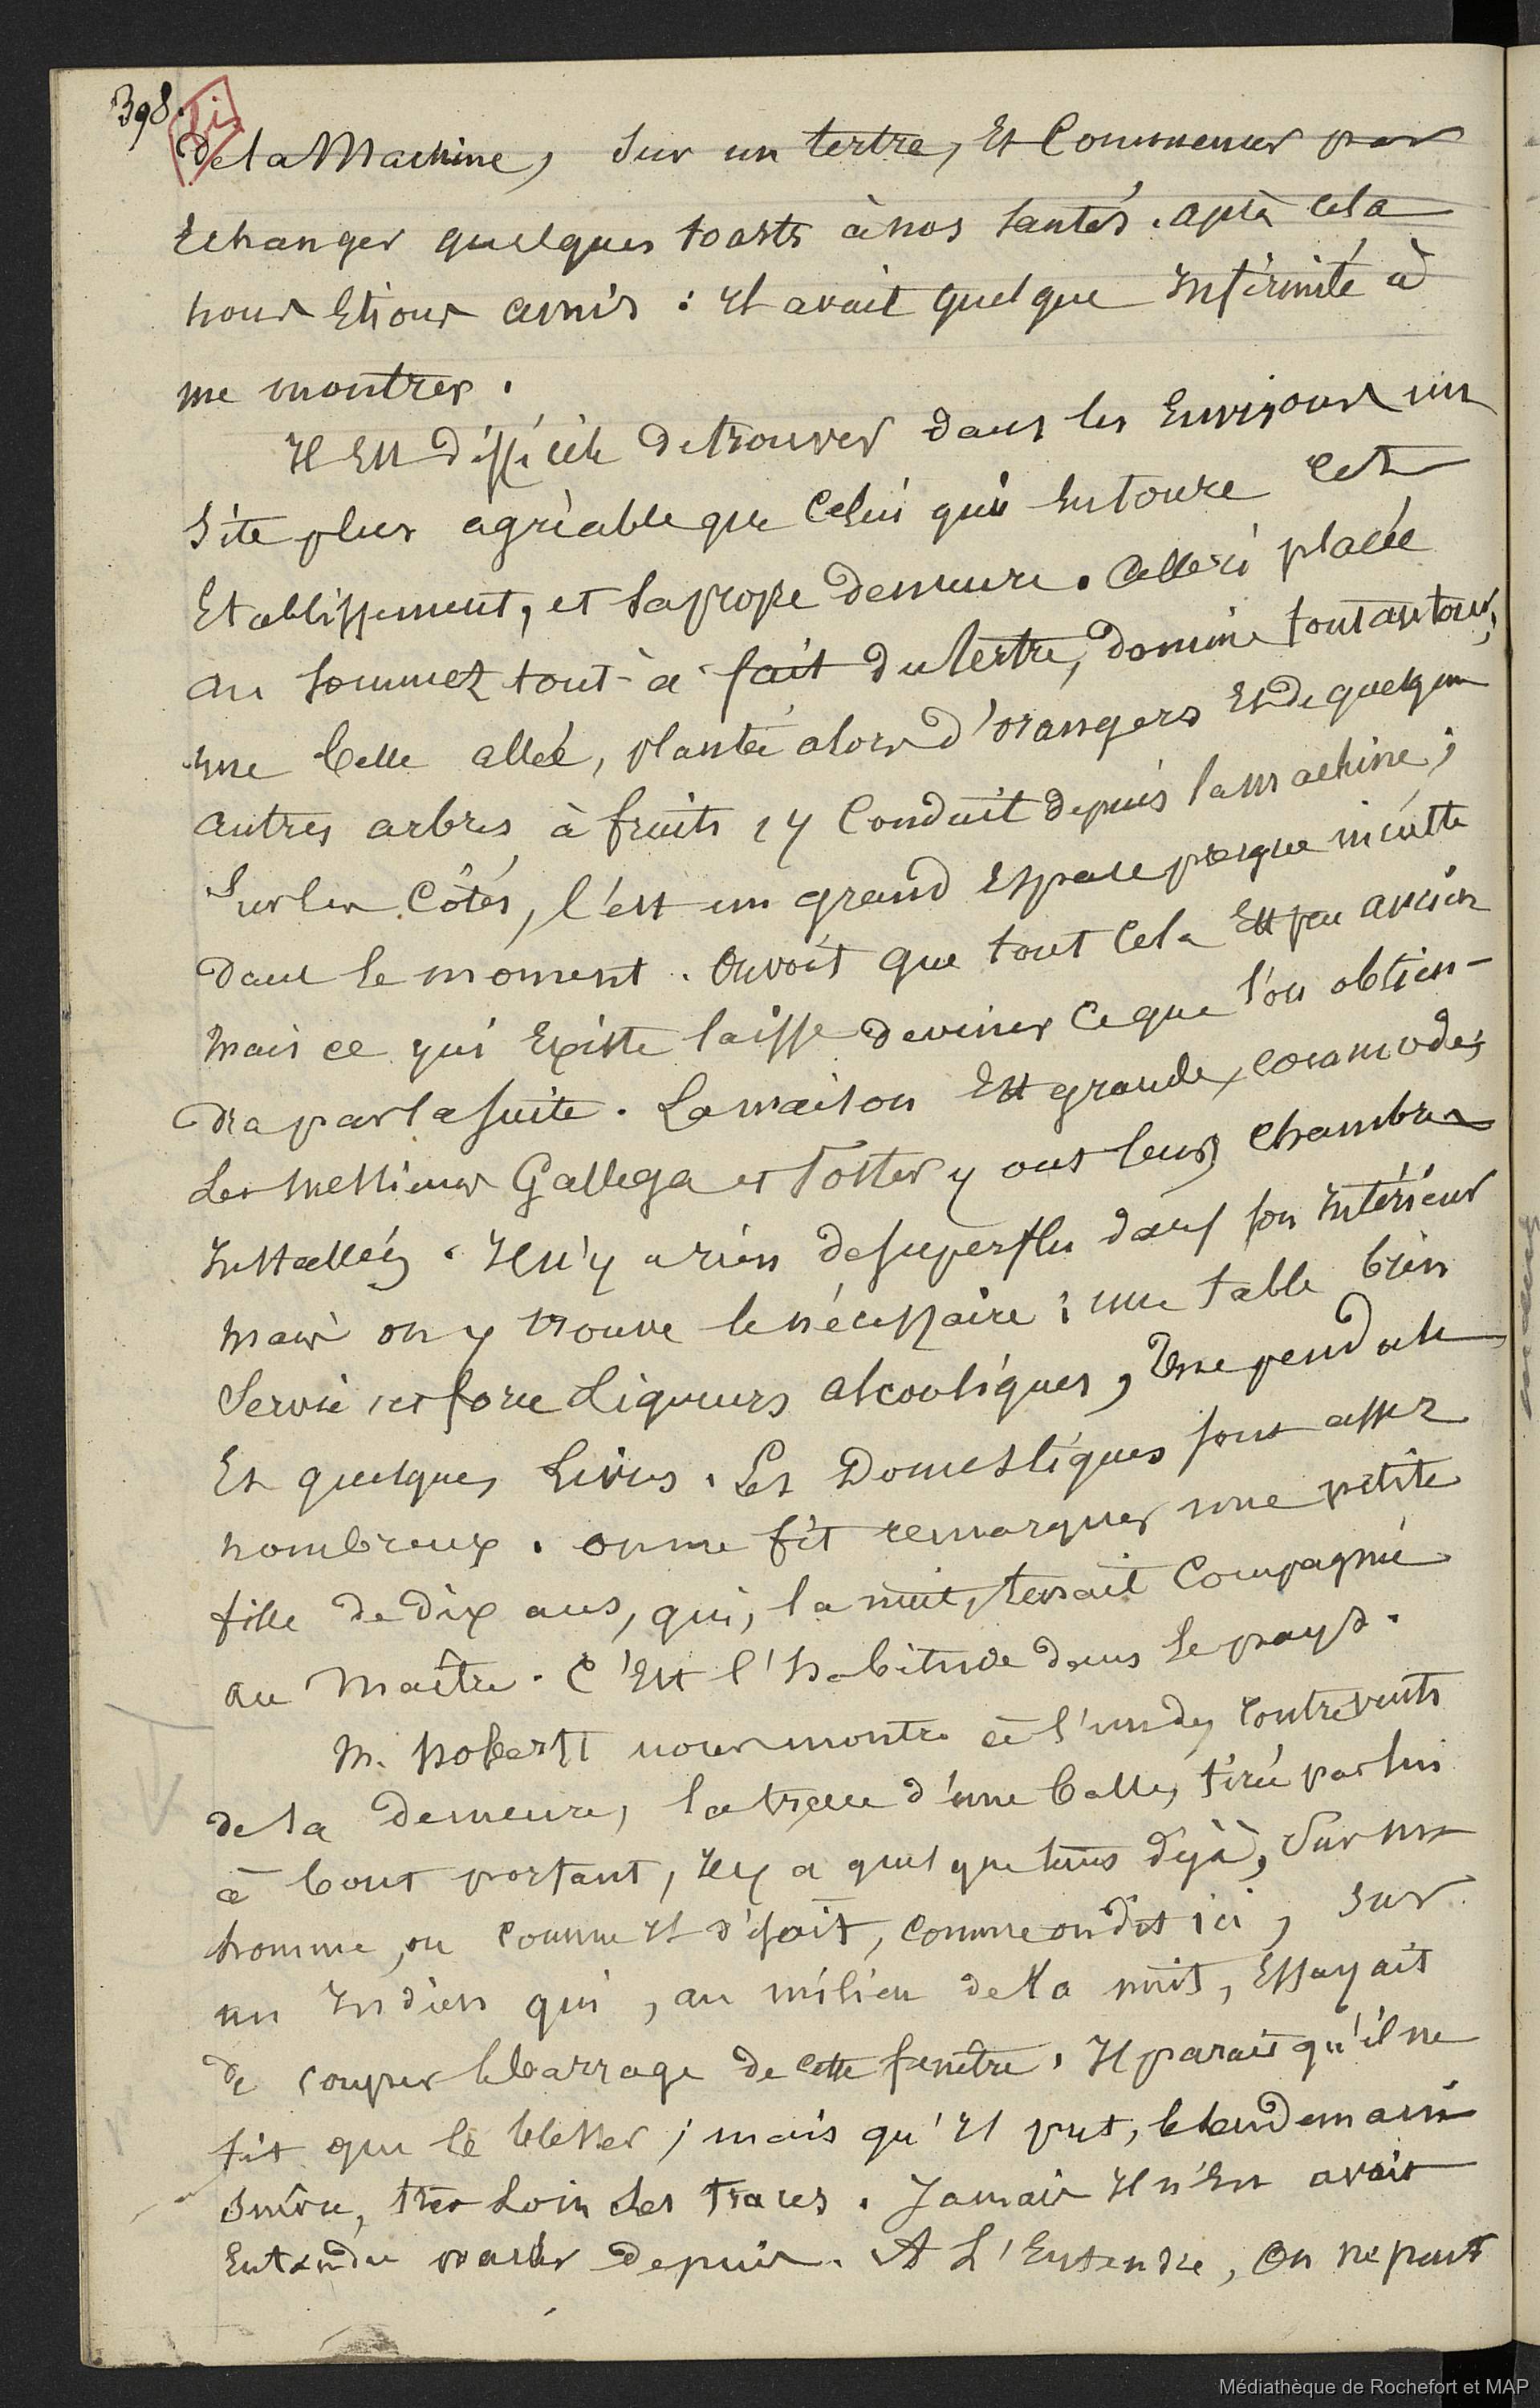 398.
de la Machine, sur un tertre, et commencer par
Echanger quelques toasts à nos santés. après cela
nous Etions amis : il avait quelque Infirmité à
me montrer.
Il Est difficile de trouver dans les Environs un
site plus agréable que celui qui Entoure cet
Etablissement, et sa propre demeure. Celle-ci placée
au sommet tout-à-fait du tertre, domine tout autour,
une belle allée, plantée alors d'orangers Et de quelques
autres arbres à fruits, y conduit depuis la machine;
Sur les côtés, c'est un grand Espace presque inculte
dans le moment. On voit que tout cela Est peu ancien
mais ce qui Existe laisse deviner ce que l'on obtien-
dra par la suite. La maison Est grande, commode;
les messieurs Gallega et Foster y ont leurs chambres
Installées. Il n'y a rien de superflu dans son Intérieur
mais on y trouve le nécessaire; une table bien
servie, et force Liqueurs alcooliques, Une pendule
Et quelques Livres. Les Domestiques sont assez
nombreux. on me fit remarquer une petite
fille de dix ans, qui, la nuit, tenait Compagnie
au Maître. C'Est l'habitude dans le pays.
M. hobartt nous montre à l'un des contrevents
de la demeure, la trace d'une balle, tirée par lui
à bout portant, Il y a quelque tems déjà, Sur un
homme, ou comme Il disait, comme on dit ici, sur
un Indien qui, au milieu de la nuit, Essayait
de couper le barrage de cette fenêtre. Il parait qu'il ne
fit que le blesser; mais qu'Il put, le lendemain
suivre, très Loin ses traces. Jamais Il n'En avait
Entendu parler depuis. A L'Entendre, On ne peut
Médiathèque de Rochefort et MAP